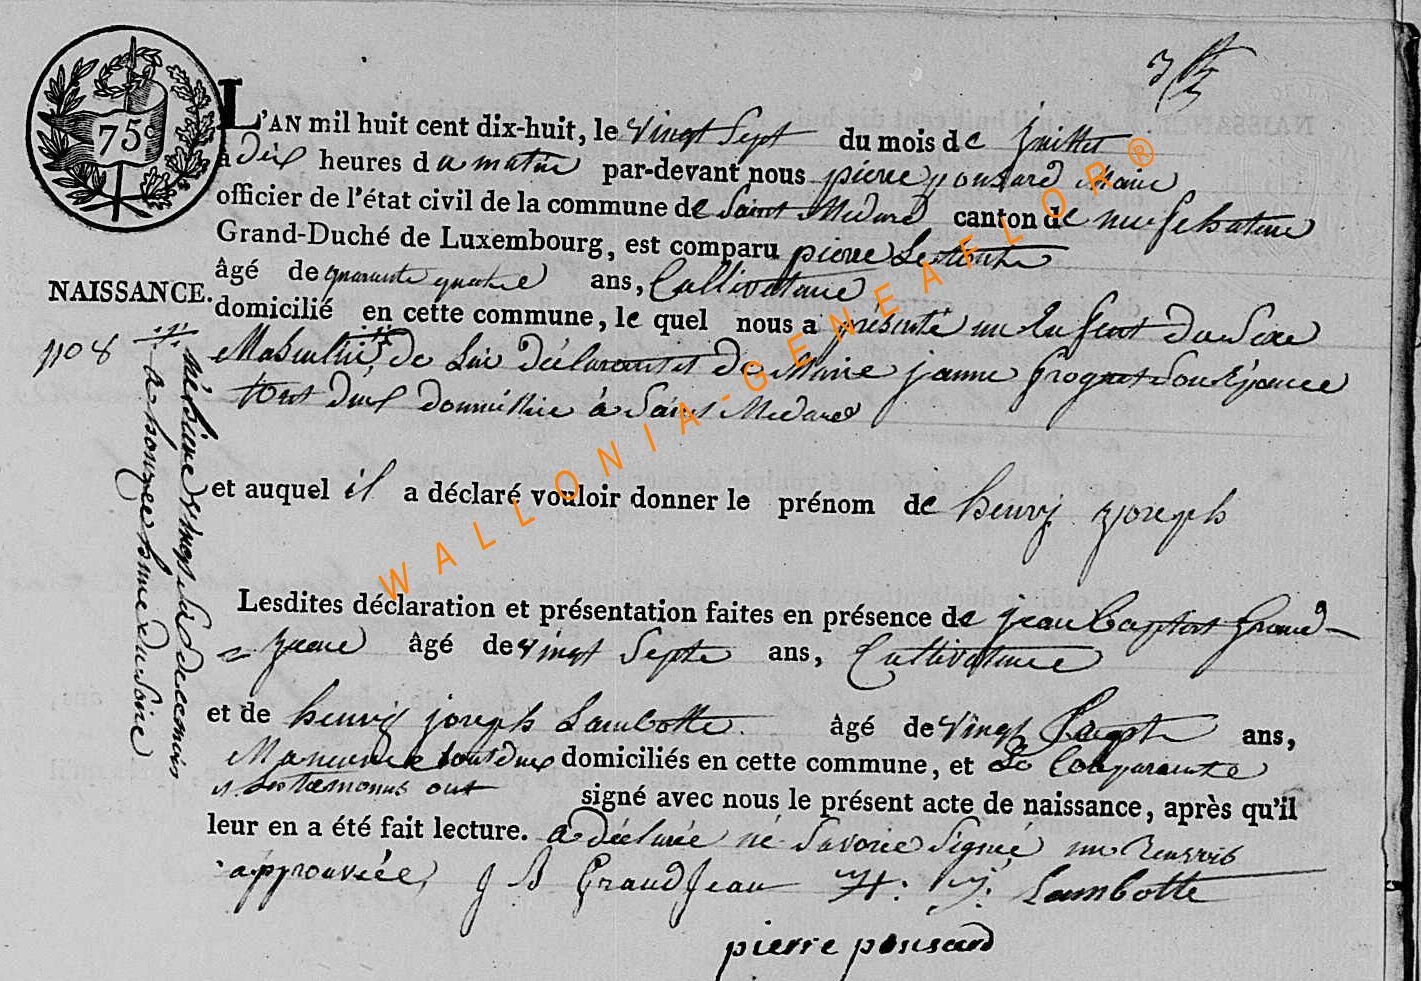 75c
L'AN mil huit cent dix-huit, le vingt Sept du mois de juillet
à dix heures du matin par-devant nous pierre ponsard Maire
officier de l'état civil de la commune de Saint Medard canton de neufchateau
Grand-Duché de Luxembourg, est comparu pierre
âgé de quarante quatre ans, Cultivateur
NAISSANCE.
domicilié en cette commune, le quel nous a présenté un enfant du Sexe
n° 8
Masculin de Lui déclarant et de Marie jeanne Son Epouce
tout deux domicillié à Saint Medard
né hier
a honze heure du Soire
et auquel il a déclaré vouloir donner le prénom de henry joseph
Lesdites déclaration et présentation faites en présence de jean Baptist Grand-
jean âgé de vingt Septe ans, Cultivateur
et de henry joseph Lambotte âgé de vingt ans,
tout deux domiciliés en cette commune, et Le Comparant
et Les temoins ont signé avec nous le présent acte de naissance, après qu'il
leur en a été fait lecture. a déclaré né Savoire Signé un Renvois
approuvée, J B GrandJean H: J: Lambotte
pierre ponsard
WALLONIA-GENEAFLOR®